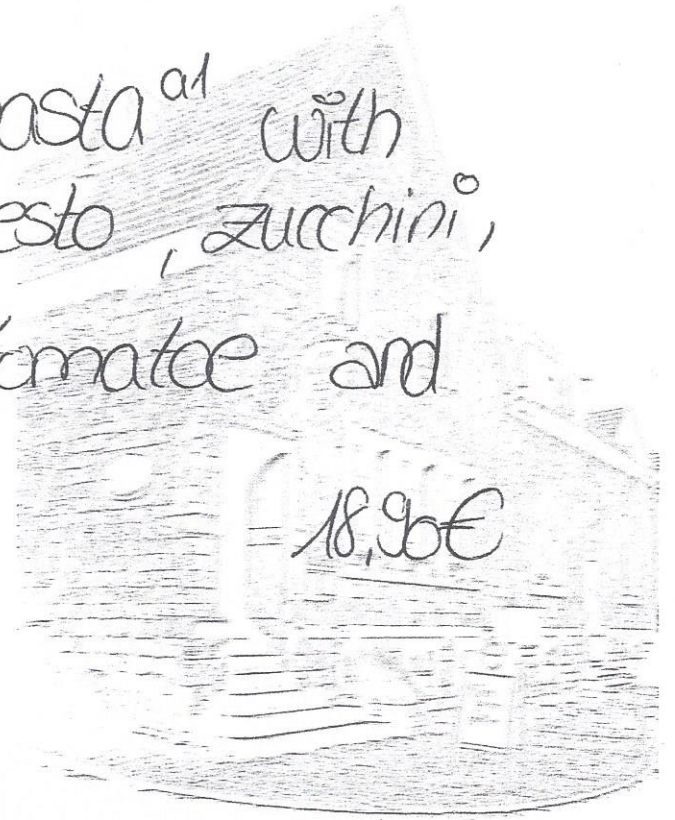 asta a1 with
esto, zucchini,
tomatoe and
18,90€